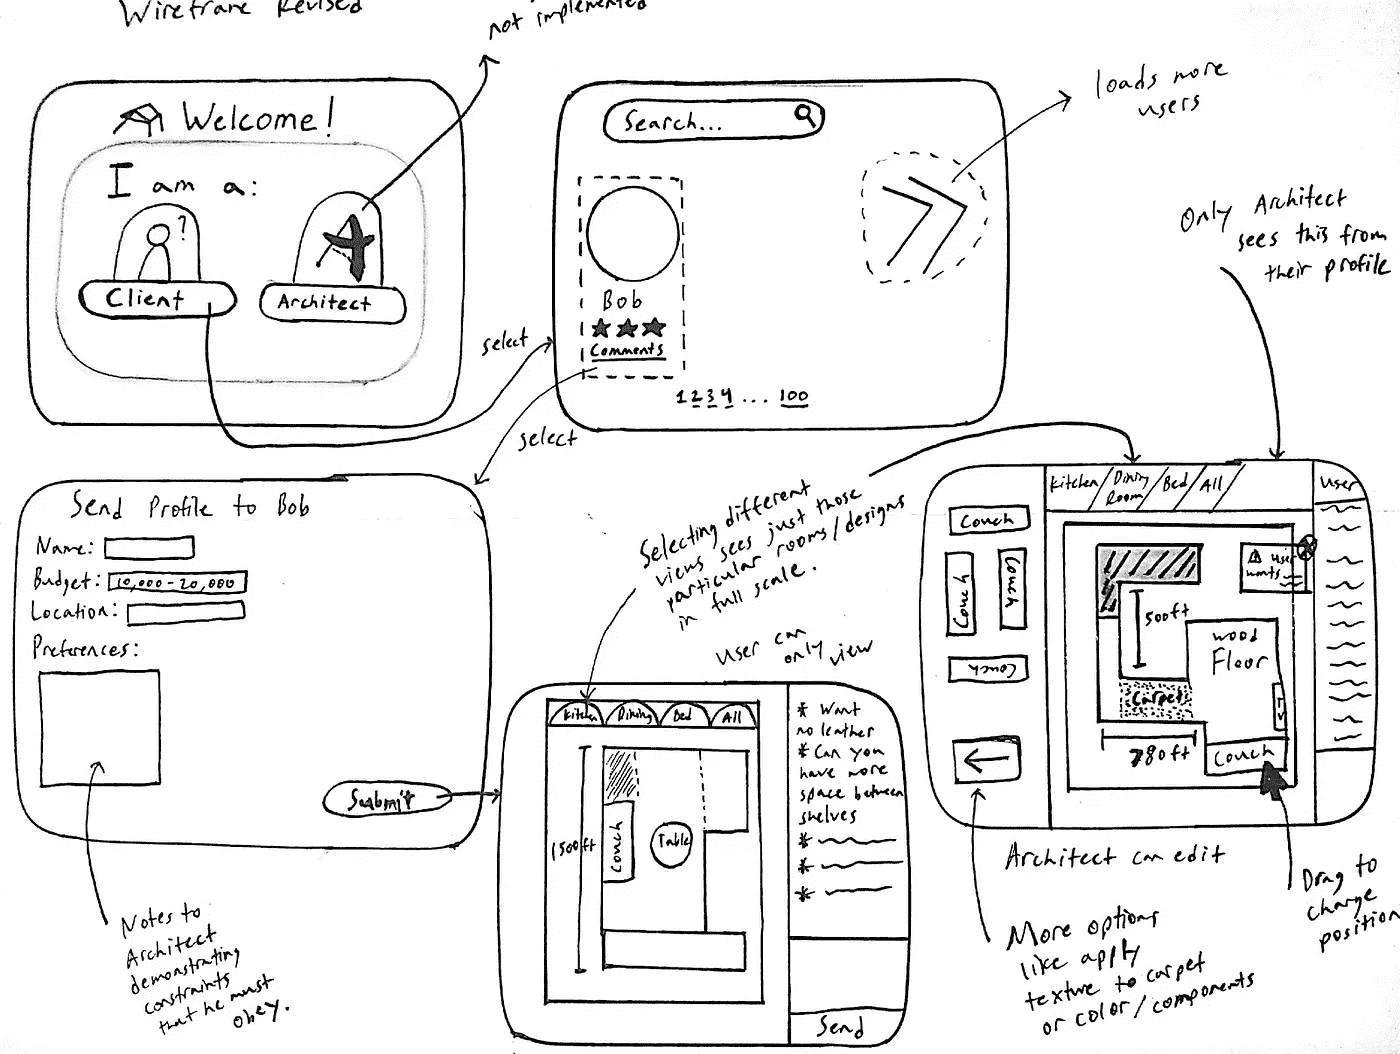 Wireframe Revised
not implemented
Welcome!
I am a:
?
Client
A
Architect
select
Search...
Bob
Comments
1 2 3 4 ... 100
select
loads more
users
Only Architect
sees this from
their profile
Send Profile to Bob
Name:
Budget: 10,000-20,000
Location:
Preferences:
Submit
Notes to
Architect
demonstrating
constraints
that he must
obey.
Selecting different
views sees just those
particular rooms/designs
in full scale.
User can
only view
Kitchen
Dining
Bed
All
1500ft
Couch
Table
* Want
no leather
* Can you
have more
space between
shelves
*
*
*
Send
Couch
Couch
Couch
Couch
Kitchen
Dining
Room
Bed
All
User
user
wants
500ft
wood
Floor
Carpet
TV
780ft
Couch
Architect can edit
More options
like apply
texture to carpet
or color/components
Drag to
change
position